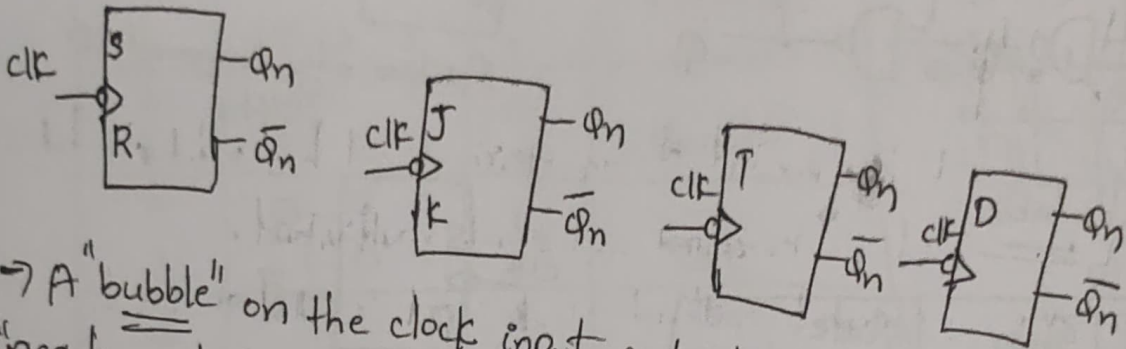 S
clk
R.
Qn
Q̅n
clk J
K
Qn
Q̅n
clk T
Qn
Q̅n
clk D
Qn
Q̅n
→ A "bubble" on the clock